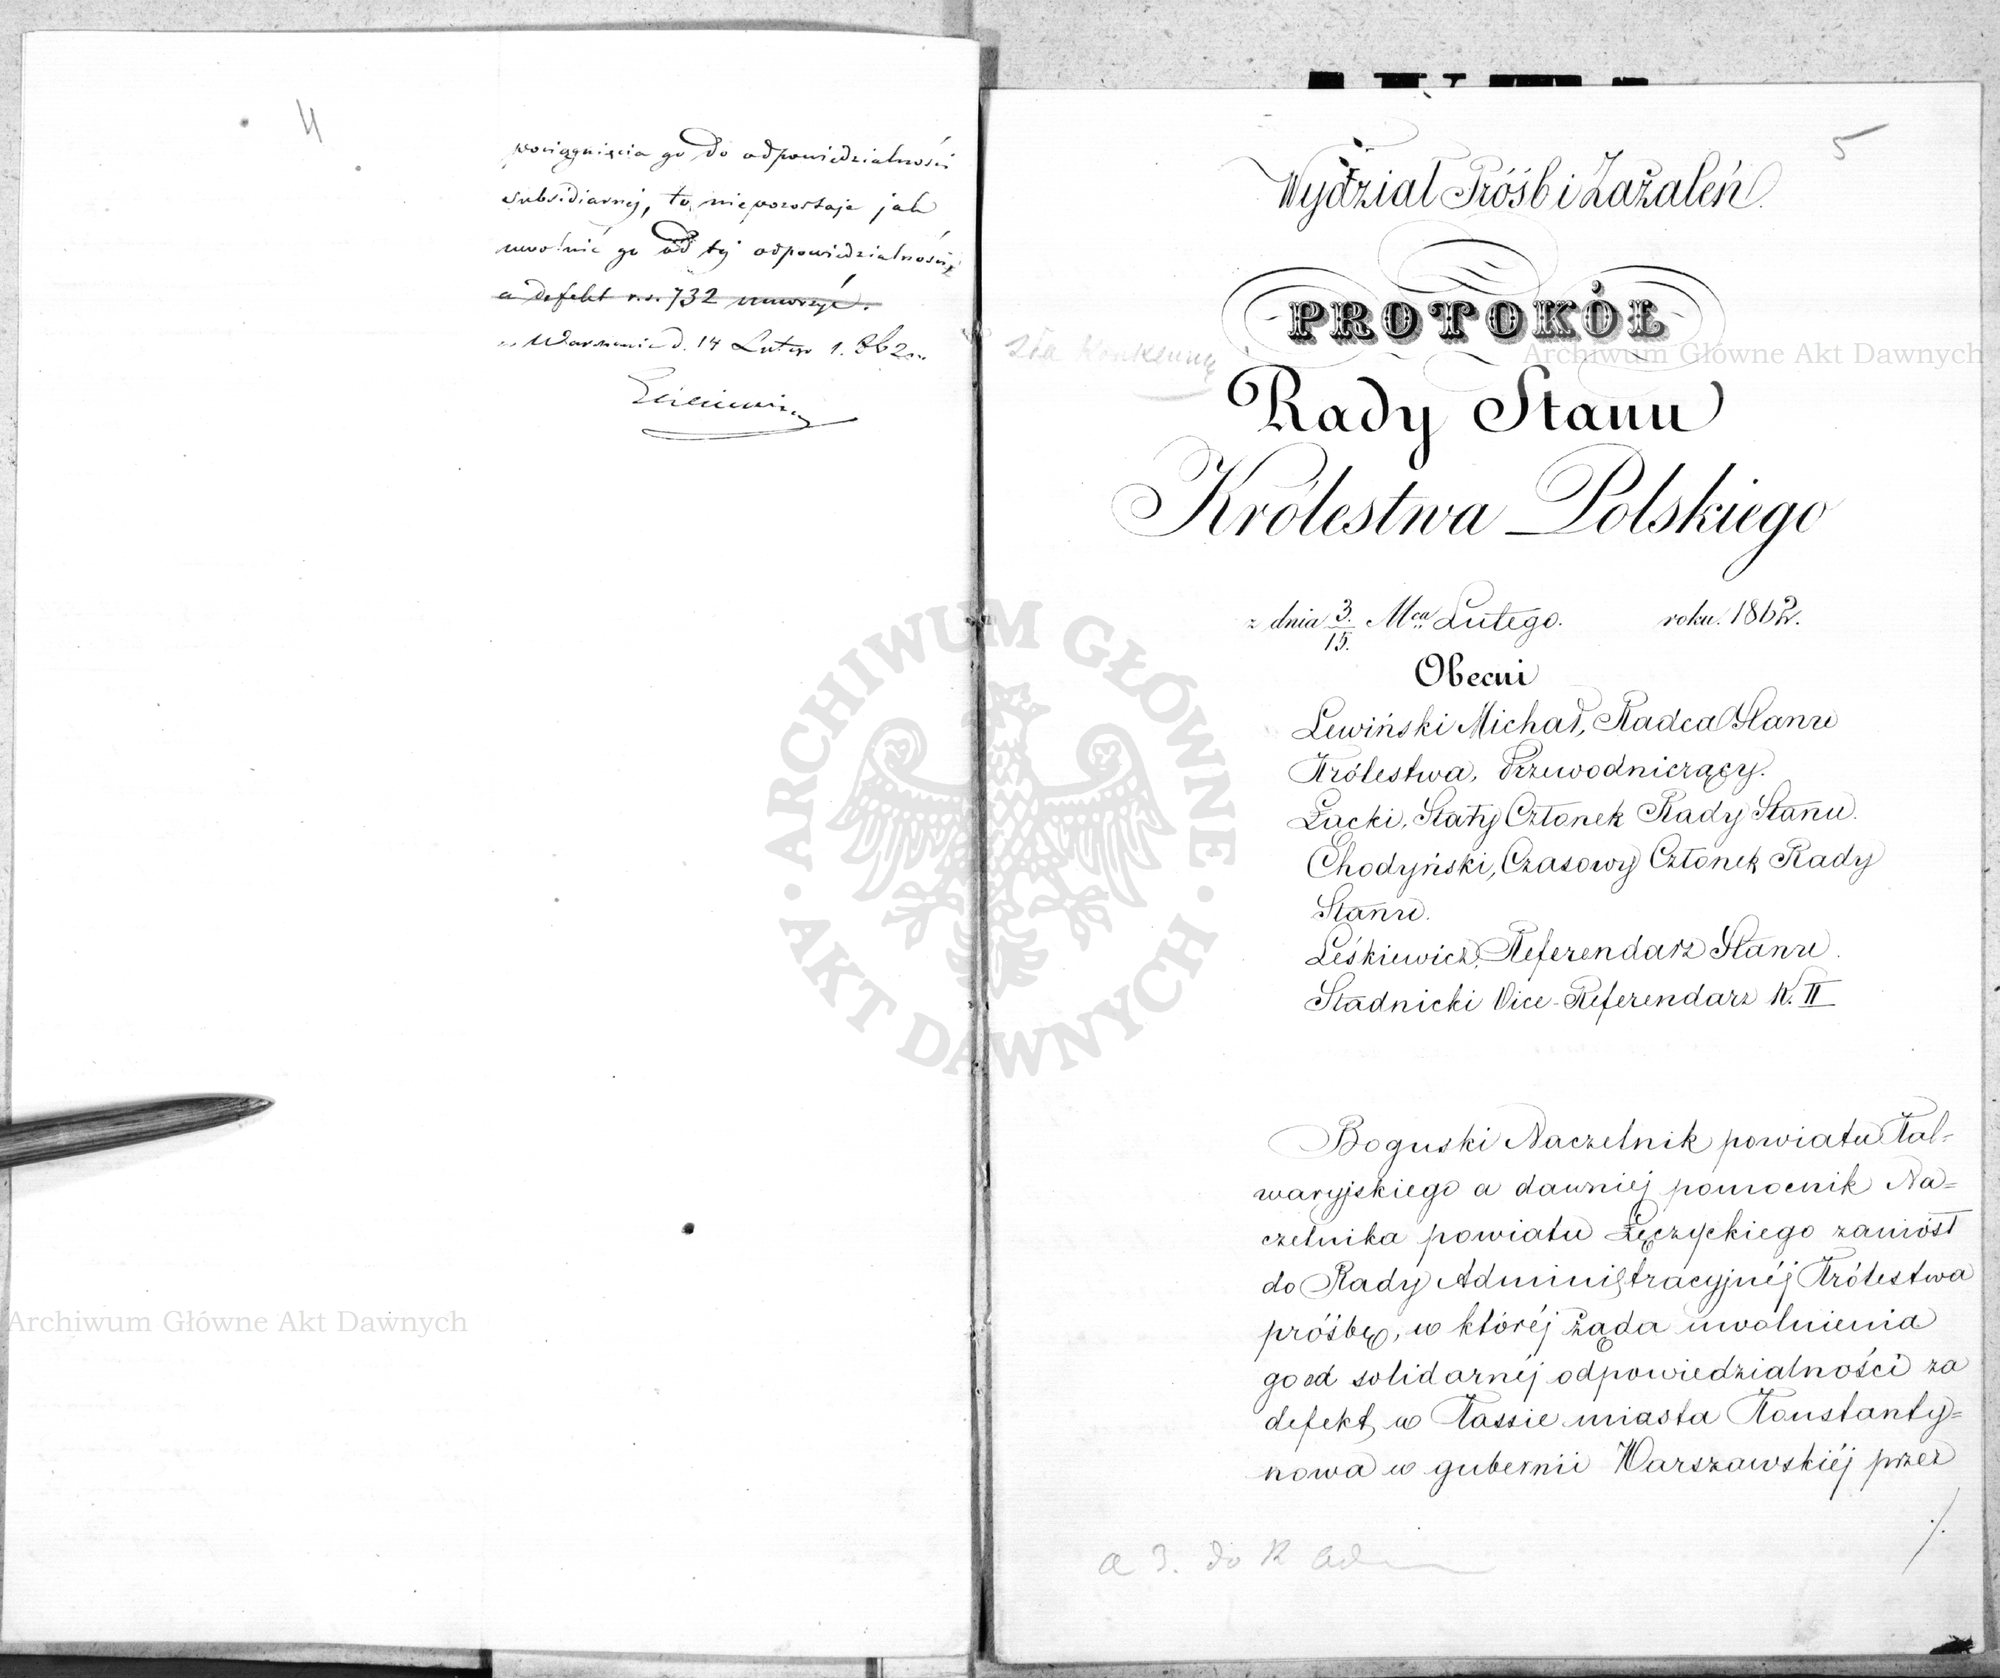 4
pociągnięcia go do odpowiedzialności
subsidiarnej, to niepozostaje jak
uwolnić go od tej odpowiedzialności,
a defekt r.s. 732 umorzyć.
w Warszawie d. 14 Lutego 1862 r.
5
Wydział Próśb i Zażaleń.
PROTOKÓŁ
Rady Stanu
Królestwa Polskiego
z dnia 3/15. Mca Lutego. roku 1862.
Obecni
Lewiński Michał, Radca Stanu
Królestwa, Przewodniczący.
Łacki, Stały Członek Rady Stanu.
Chodyński, Czasowy Członek Rady
Stanu.
Leśkiewicz, Referendarz Stanu.
Stadnicki Vice-Referendarz K. II
Boguski Naczelnik powiatu Kal-
waryjskiego a dawniej pomocnik Na-
czelnika powiatu Łęczyckiego zaniósł
do Rady Administracyjnéj Królestwa
próśbę, w któréj żąda uwolnienia
go od solidarnéj odpowiedzialności za
defekt, w Kassie miasta Konstanty-
nowa w gubernii Warszawskiéj przez
./.
a 3. do R Adm
ARCHIWUM GŁÓWNE AKT DAWNYCH
Archiwum Główne Akt Dawnych
Archiwum Główne Akt Dawnych